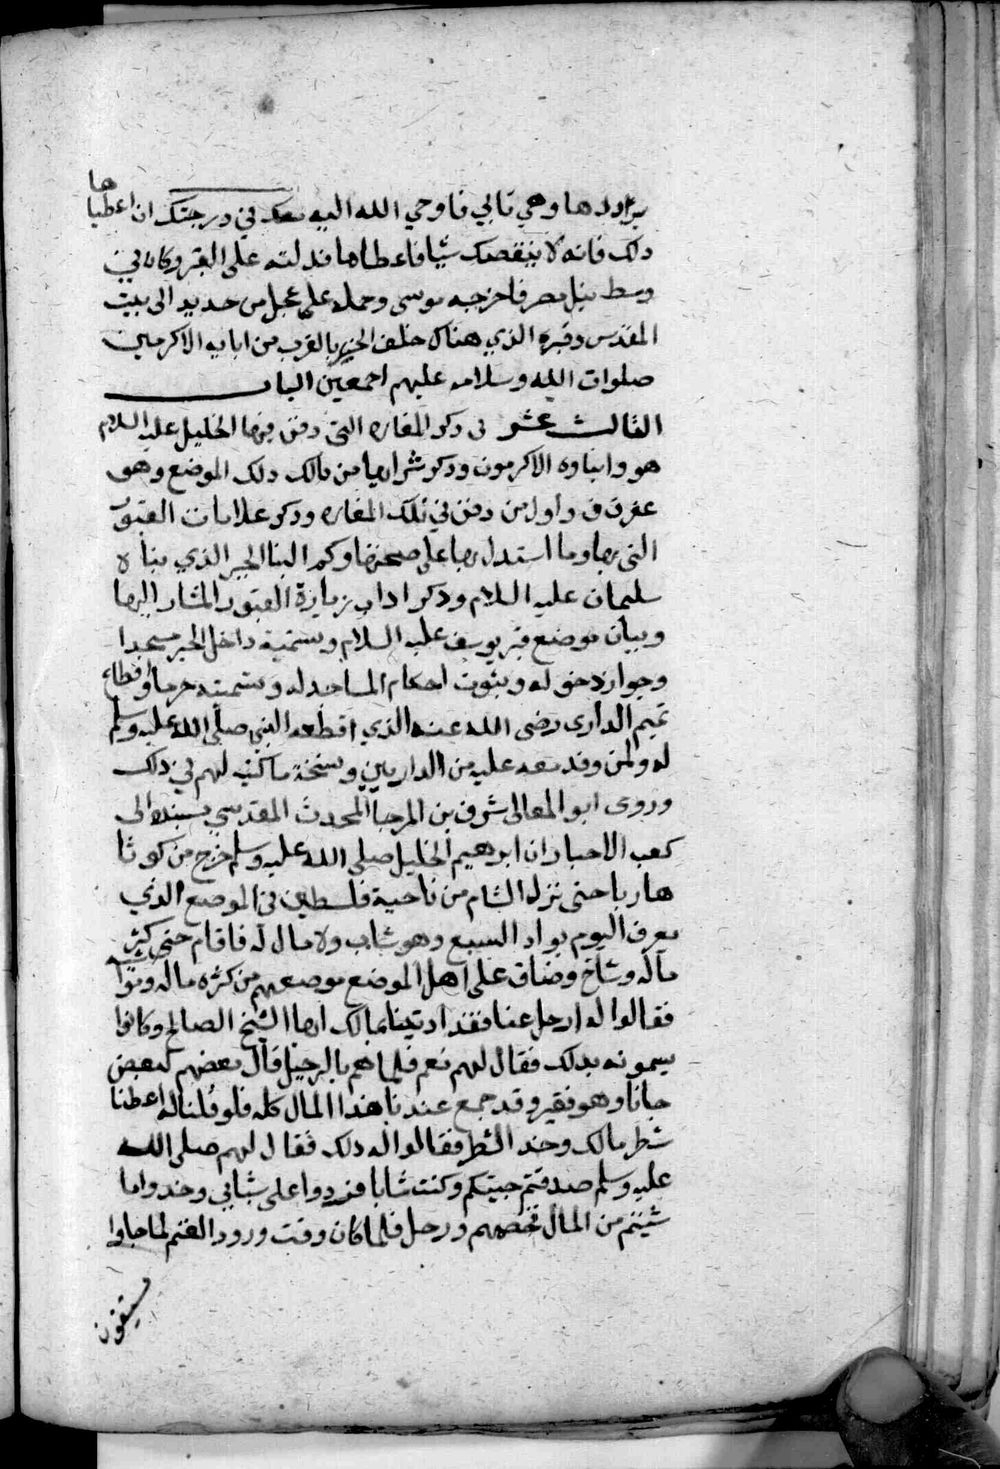 يرادد ها وهي تابي فاوحي الله اليه معك في درجتك ان اعطيها
دلك فانه لا ينقصك شيا فاعطاها فدلته علي القبر وكان في
وسط نيل مصر فاخرجه موسى وحمله على عجل من حديد الى بيت
المقدس وقبره الذي هناك خلف الحير بالقرب من ابايه الاكرمين
صلوات الله وسلامه عليهم اجمعين الباب
الثالث عشر في دكر المغاره التي دفن فيها الخليل عليه السلام
هو وابناوه الاكرمون ودكر شرايها من مالك دلك الموضع وهو
عفرون واول من دفن في تلك المغاره ودكر علامات القبور
التي بها وما استدل بها على صحتها وكم البنا الحير الذي بناه
سليمان عليه السلام ودكر اداب زيارة القبور المشار اليها
وبيان موضع قبر يوسف عليه السلام وتسمية داخل الحير مسجدا
وجواز دخوله وثبوت احكام المساجد له وتسميته حرما واقطاع
تميم الدارى رضى الله عنه الذي اقطعه النبي صلى الله عليه وسلم
له ولمن وفد معه عليه من الداريين ونسخة ما كتب لهم في دلك
وروى ابو المعالى شرف بن المرجا المحدث المقدسي بسنده الى
كعب الاحبار ان ابرهيم الخليل صلى الله عليه وسلم خرج من كوثا
هاربا حتى نزل الشام من ناحية فلسطين في الموضع الذي
يعرف اليوم بواد السبع وهو شاب ولا مال له فاقام حتى كثر
ماله وشاخ وضاق على اهل الموضع موضعهم من كثره ماله ومواشيه
فقالوا له ارحل عنا فقد اديتنا بمالك ايها الشيخ الصالح وكانوا
يسمونه بدلك فقال لهم نعم فلما هم بالرحيل قال بعضهم لبعض
جانا وهو فقير وقد جمع عندنا هذا المال كله فلو قلنا له اعطنا
شطر مالك وخد الشطر فقالوا له دلك فقال لهم صلى الله
عليه وسلم صدقتم جيتكم وكنت شابا فردوا على شبابي وخدوا ما
شيتم من المال فخصمهم ورحل فلما كان وقت ورود الغنم لما جاوا
يستقون